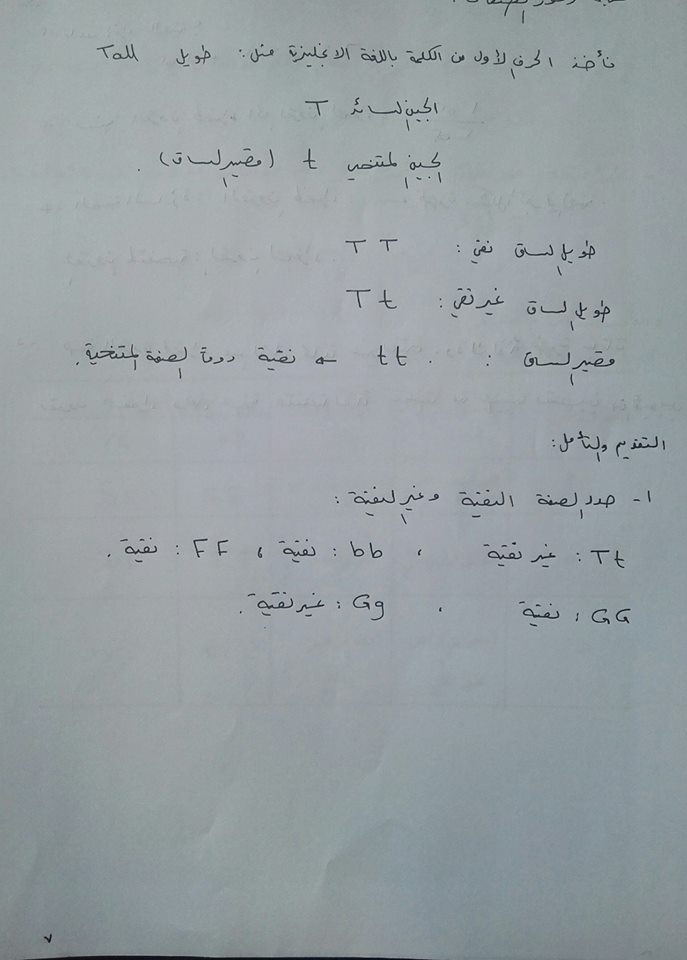 نأخذ الحرف الأول من الكلمة باللغة الانجليزية مثل: طويل Tall
الجين السائد T
الجين المتنحي t (قصير الساق).
طويل الساق نقي: TT
طويل الساق غير نقي: Tt
قصير الساق: tt ← نقية دوماً الصفة المتنحية.
التقويم والتأمل:
١- حدد الصفة النقية وغير النقية:
Tt: غير نقية ، bb: نقية ، FF: نقية.
GG: نقية ، Gg: غير نقية.
٧